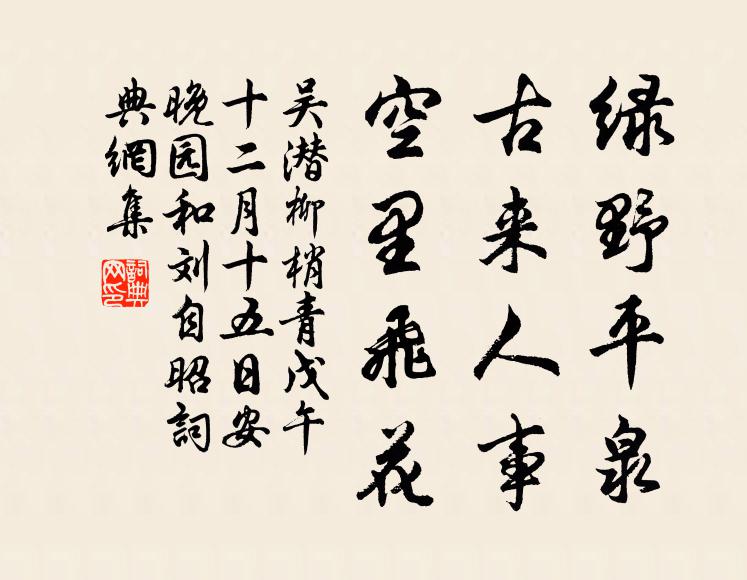 绿野平泉
古来人事
空里飞花
吴潜柳梢青戊午
十二月十五日安
晚园和刘自昭詞
典網集
詞典
网印